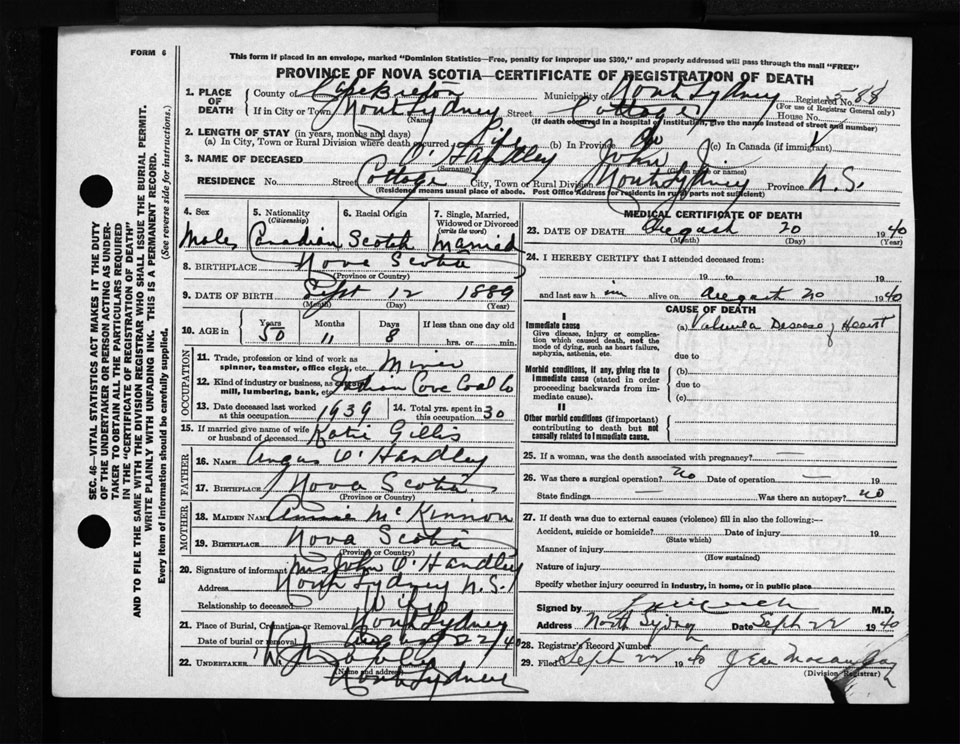 FORM 6
This form if placed in an envelope, marked "Dominion Statistics—Free, penalty for improper use $300," and properly addressed will pass through the mail "FREE"
PROVINCE OF NOVA SCOTIA—CERTIFICATE OF REGISTRATION OF DEATH
SEC. 46—VITAL STATISTICS ACT MAKES IT THE DUTY
OF THE UNDERTAKER OR PERSON ACTING AS UNDER-
TAKER TO OBTAIN ALL THE PARTICULARS REQUIRED
IN THE "CERTIFICATE OF REGISTRATION OF DEATH"
AND TO FILE THE SAME WITH THE DIVISION REGISTRAR WHO SHALL ISSUE THE BURIAL PERMIT.
WRITE PLAINLY WITH UNFADING INK. THIS IS A PERMANENT RECORD.
Every item of information should be carefully supplied. (See reverse side for instructions.)
1. PLACE OF DEATH County of Cape Breton Municipality of North Sydney Registered No. 588
(For use of Registrar General only)
If in City or Town North Sydney Street Cottage House No.
(Name) (If death occurred in a hospital or institution, give the name instead of street and number)
2. LENGTH OF STAY (in years, months and days)
(a) In City, Town or Rural Division where death occurred Life (b) In Province do (c) In Canada (if immigrant)
3. NAME OF DECEASED O'Handley John J.
(Surname) (Given name or names)
RESIDENCE No. Street Cottage City, Town or Rural Division North Sydney Province N.S.
(Residence means usual place of abode. Post Office Address for residents in rural parts not sufficient)
4. Sex 5. Nationality (Citizenship) 6. Racial Origin 7. Single, Married, Widowed or Divorced (write the word)
Male Canadian Scotch Married
8. BIRTHPLACE Nova Scotia
(Province or Country)
9. DATE OF BIRTH Sept 12 1889
(Month) (Day) (Year)
10. AGE in Years 50 Months 11 Days 8 If less than one day old hrs. or min.
OCCUPATION
11. Trade, profession or kind of work as spinner, teamster, office clerk, etc. Miner
12. Kind of industry or business, as mill, lumbering, bank, etc. Indian Cove Coal Co
13. Date deceased last worked at this occupation 1939 14. Total yrs. spent in this occupation 30
15. If married give name of wife or husband of deceased Katie Gillis
FATHER
16. NAME Angus O'Handley
17. BIRTHPLACE Nova Scotia
(Province or Country)
MOTHER
18. MAIDEN NAME Annie McKinnon
19. BIRTHPLACE Nova Scotia
(Province or Country)
20. Signature of informant Mrs John O'Handley
Address North Sydney N.S.
Relationship to deceased Wife
21. Place of Burial, Cremation or Removal North Sydney
Date of burial or removal August 22/40
22. UNDERTAKER
(Name and address)
North Sydney
MEDICAL CERTIFICATE OF DEATH
23. DATE OF DEATH August 20 1940
(Month) (Day) (Year)
24. I HEREBY CERTIFY that I attended deceased from:
19 to 19
and last saw him alive on August 20 1940
CAUSE OF DEATH
I
Immediate cause
Give disease, injury or complication which caused death, not the mode of dying, such as heart failure, asphyxia, asthenia, etc.
(a) Valvular Disease of Heart
due to
Morbid conditions, if any, giving rise to immediate cause (stated in order proceeding backwards from immediate cause).
(b)
due to
(c)
II
Other morbid conditions (if important) contributing to death but not causally related to immediate cause.
25. If a woman, was the death associated with pregnancy? —
26. Was there a surgical operation? no Date of operation —
State findings — Was there an autopsy? no
27. If death was due to external causes (violence) fill in also the following:—
Accident, suicide or homicide? Date of injury 19
(State which)
Manner of injury
(How sustained)
Nature of injury
Specify whether injury occurred in industry, in home, or in public place
Signed by M.D.
Address North Sydney Date Sept 22 1940
28. Registrar's Record Number
29. Filed Sept 22 1940
(Division Registrar)